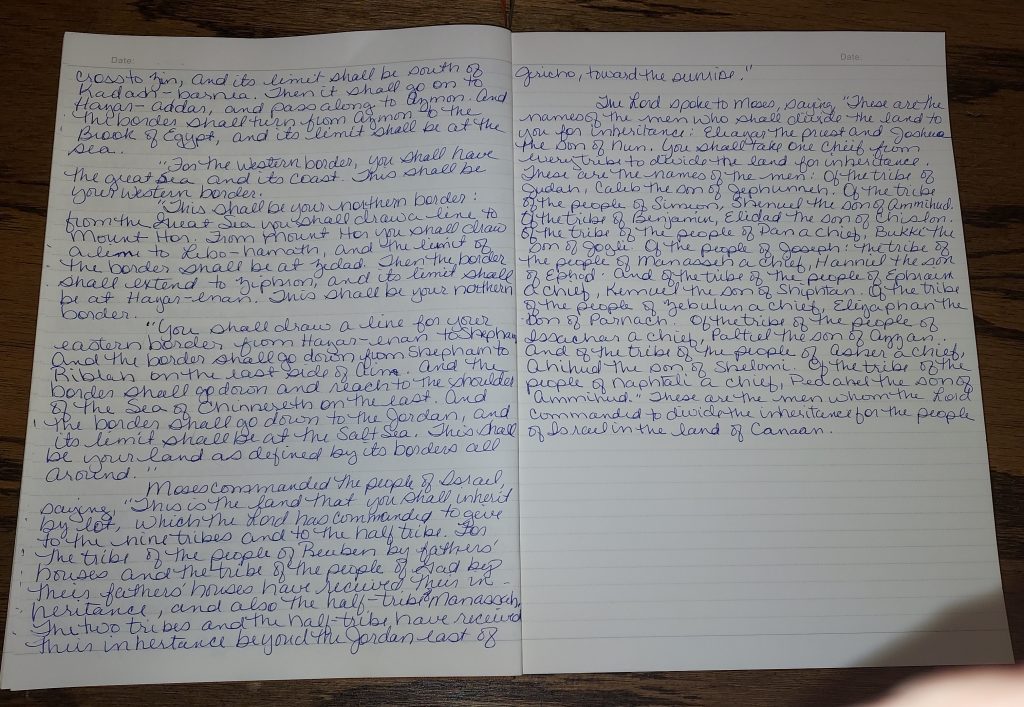 Date:
cross to Zin, and its limit shall be south of
Kadash-barnea. Then it shall go on to
Hazar-addar, and pass along to Azmon. And
the border shall turn from Azmon to the
Brook of Egypt, and its limit shall be at the
sea.
"For the western border, you shall have
the great Sea and its coast. This shall be
your western border.
"This shall be your northern border:
from the Great Sea you shall draw a line to
Mount Hor. From Mount Hor you shall draw
a line to Lebo-hamath, and the limit of
the border shall be at Zedad. Then the border
shall extend to Ziphron, and its limit shall
be at Hazar-enan. This shall be your northern
border.
"You shall draw a line for your
eastern border from Hazar-enan to Shepham
And the border shall go down from Shepham to
Riblah on the east side of Ain. And the
border shall go down and reach to the shoulder
of the Sea of Chinnereth on the east. And
the border shall go down to the Jordan, and
its limit shall be at the Salt Sea. This shall
be your land as defined by its borders all
around."
Moses commanded the people of Israel,
saying, "This is the land that you shall inherit
by lot, which the Lord has commanded to give
to the nine tribes and to the half tribe. For
the tribe of the people of Reuben by fathers'
houses and the tribe of the people of Gad by
their fathers' houses have received their in-
heritance, and also the half-tribe of Manassah.
The two tribes and the half-tribe, have received
their inhertance beyond the Jordan east of
Date:
Jericho, toward the sunrise."
The Lord spoke to Moses, saying, "These are the
names of the men who shall divide the land to
you for inheritance: Eleazar the priest and Joshua
the son of Nun. You shall take one chief from
every tribe to divide the land for inheritance.
These are the names of the men: Of the tribe of
Judah, Caleb the son of Jephunneh. Of the tribe
of the people of Simeon, Shemuel the son of Ammihud.
Of the tribe of Benjamin, Elidad the son of Chislon.
Of the tribe of the people of Dan a chief, Bukki the
son of Jogli. Of the people of Joseph: the tribe of
the people of Manasseh a chief, Hanniel the son
of Ephod. And of the tribe of the people of Ephraim
a chief, Kemuel the son of Shiphtan. Of the tribe
of the people of Zebulun a chief, Elizaphan the
son of Parnach. Of the tribe of the people of
Issachar a chief, Paltiel the son of Azzan.
And of the tribe of the people of Asher a chief,
Ahihud the son of Shelomi. Of the tribe of the
people of Naphtali a chief, Pedahel the son of
Ammihud." These are the men whom the Lord
commanded to divide the inheritance for the people
of Israel in the land of Canaan.